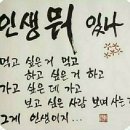 인생 뭐 있나
먹고 싶은거 먹고
하고 싶은 거 하고
가고 싶은 데 가고
보고 싶은 사람 보며 사는거
그게 인생이지...